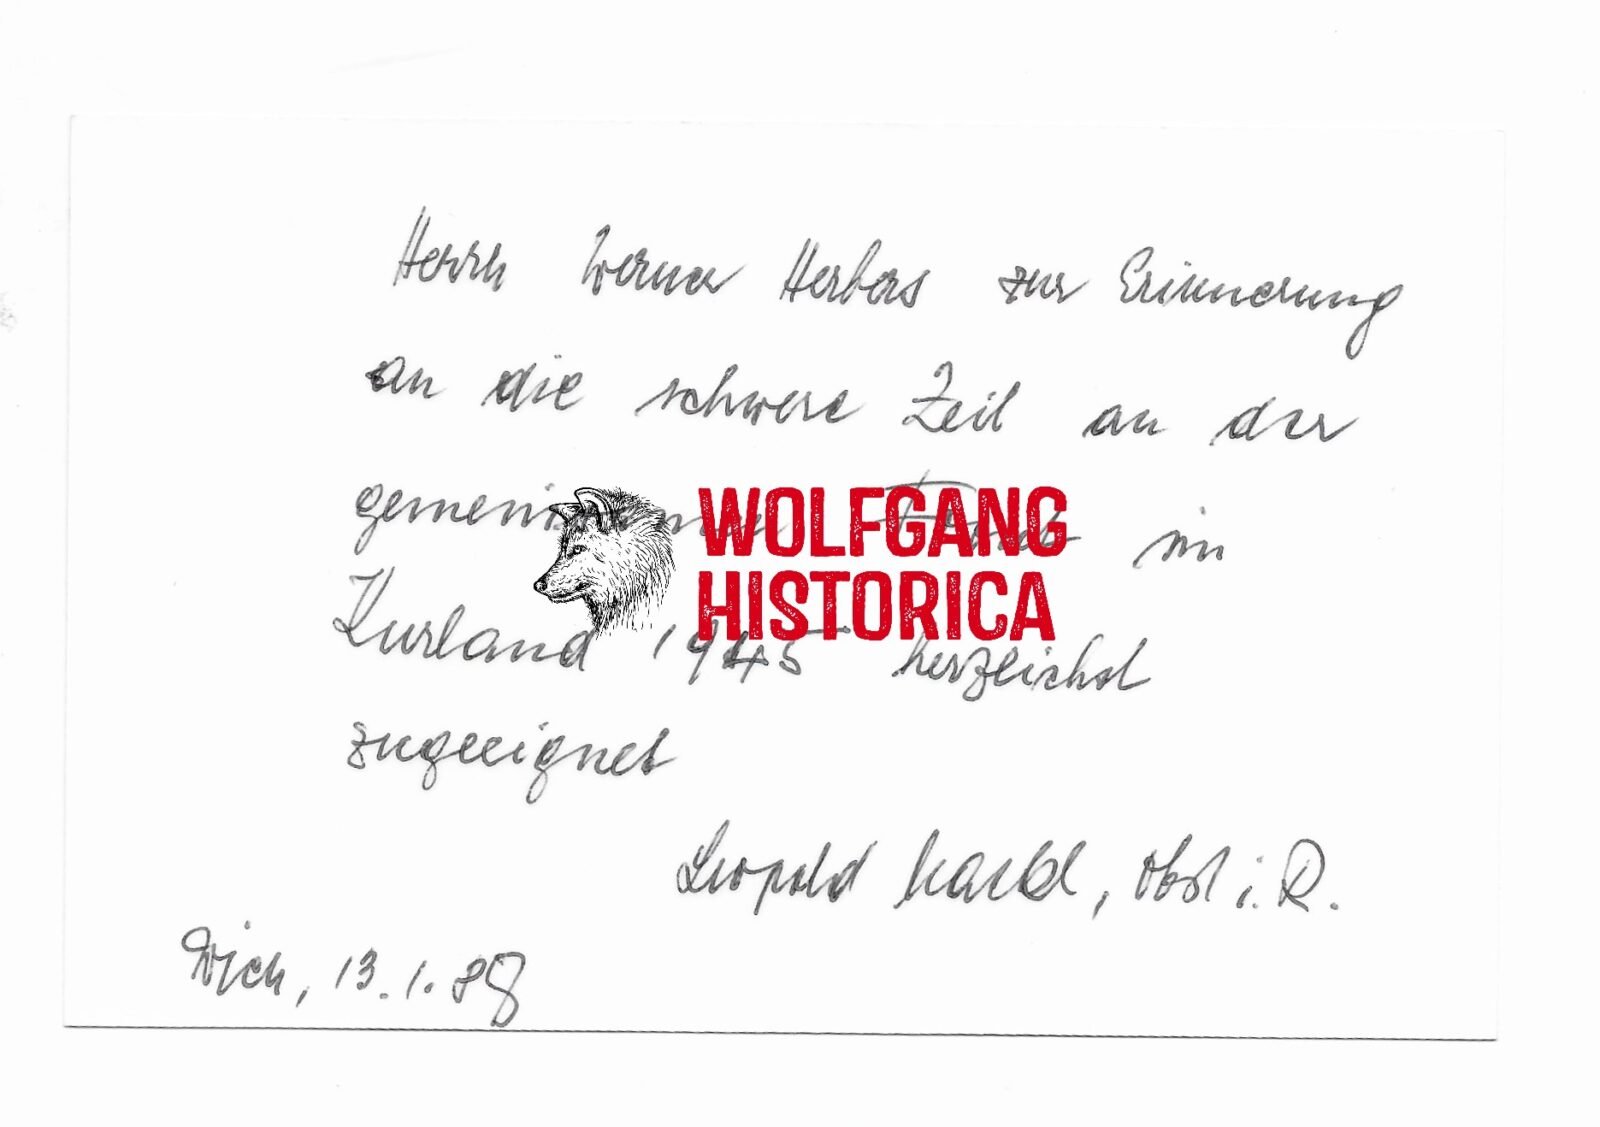 Herrn Werner Herbers zur Erinnerung
an die schwere Zeit an der
gemeinsamen Front im
WOLFGANG
HISTORICA
Kurland 1945 herzlichst
zugeeignet
Leopold Obst i. R.
Wien, 13.1.88